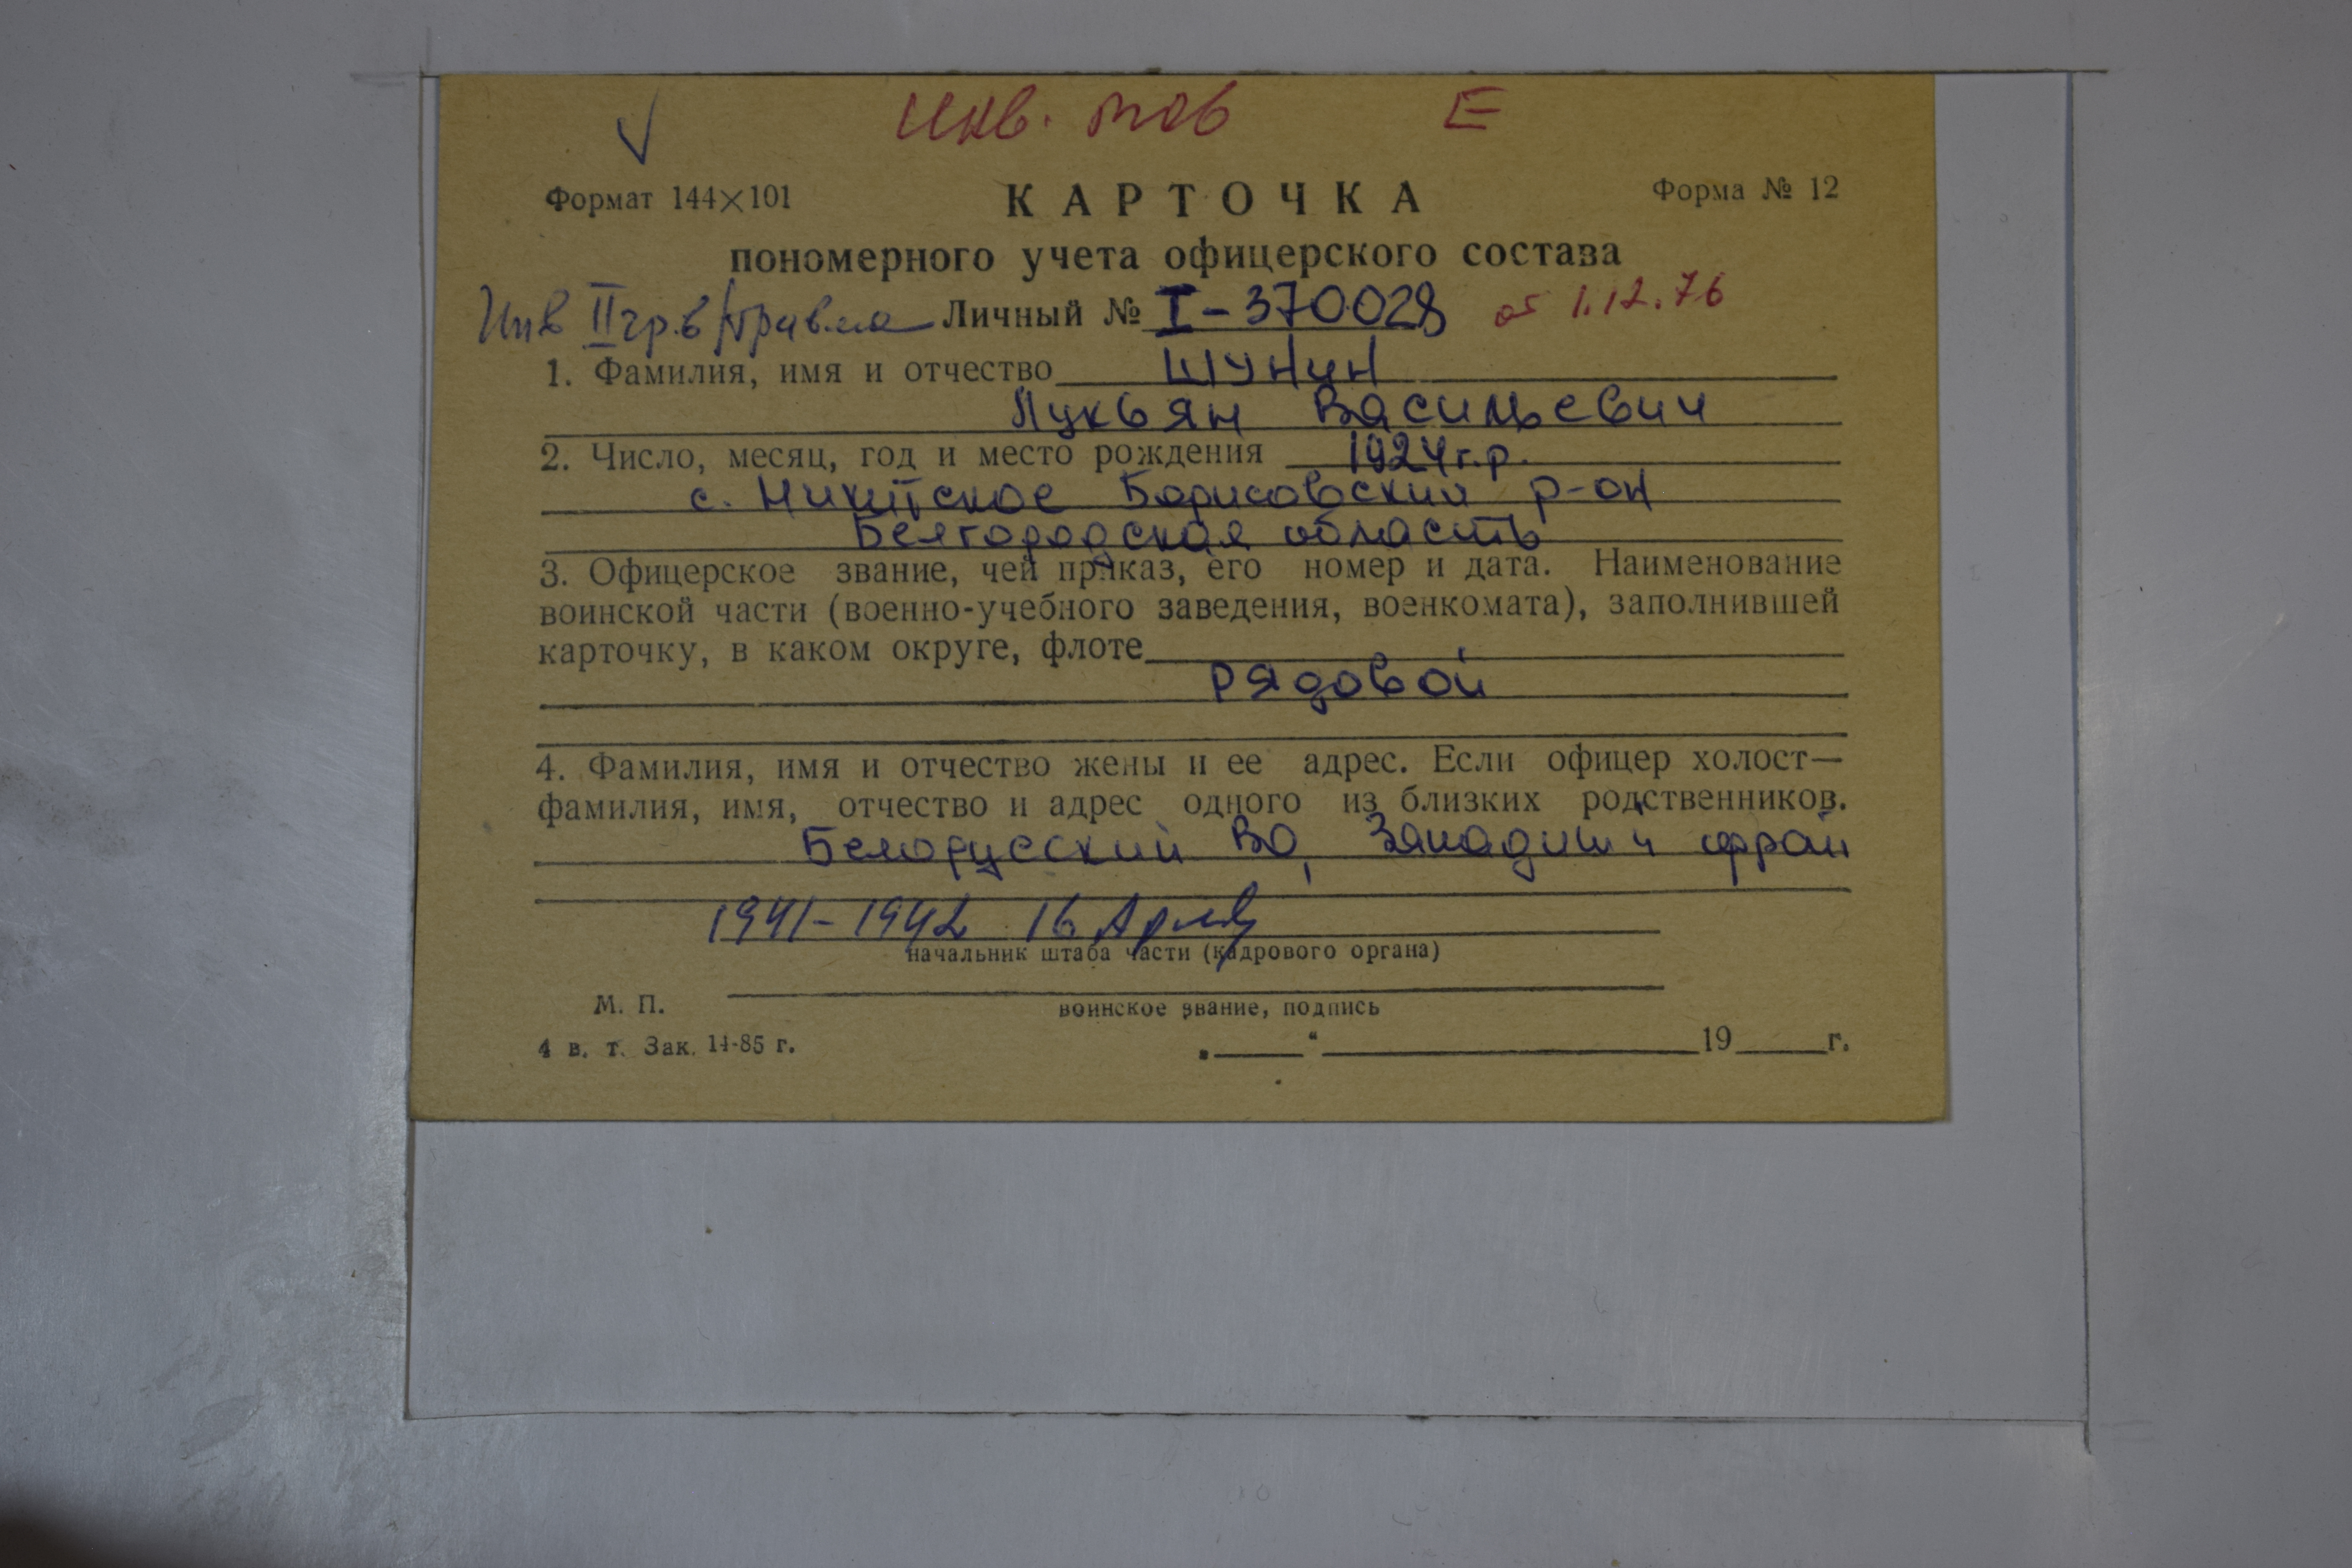 ✓ Инв. ВОВ Е
Формат 144×101 КАРТОЧКА Форма № 12
пономерного учета офицерского состава
Инв II гр. в/травма Личный № I-370028 от 1.12.76
1. Фамилия, имя и отчество Шунин
Лукьян Васильевич
2. Число, месяц, год и место рождения 1924 г.р.
с. Никитское Борисовский р-он
Белгородская область
3. Офицерское звание, чей приказ, его номер и дата. Наименование
воинской части (военно-учебного заведения, военкомата), заполнившей
карточку, в каком округе, флоте
рядовой
4. Фамилия, имя и отчество жены и ее адрес. Если офицер холост—
фамилия, имя, отчество и адрес одного из близких родственников.
Белорусский ВО, фрон
1941-1942 16
начальник штаба части (кадрового органа)
М. П.
воинское звание, подпись
4 в. т. Зак. 14-85 г. „ “ 19 г.